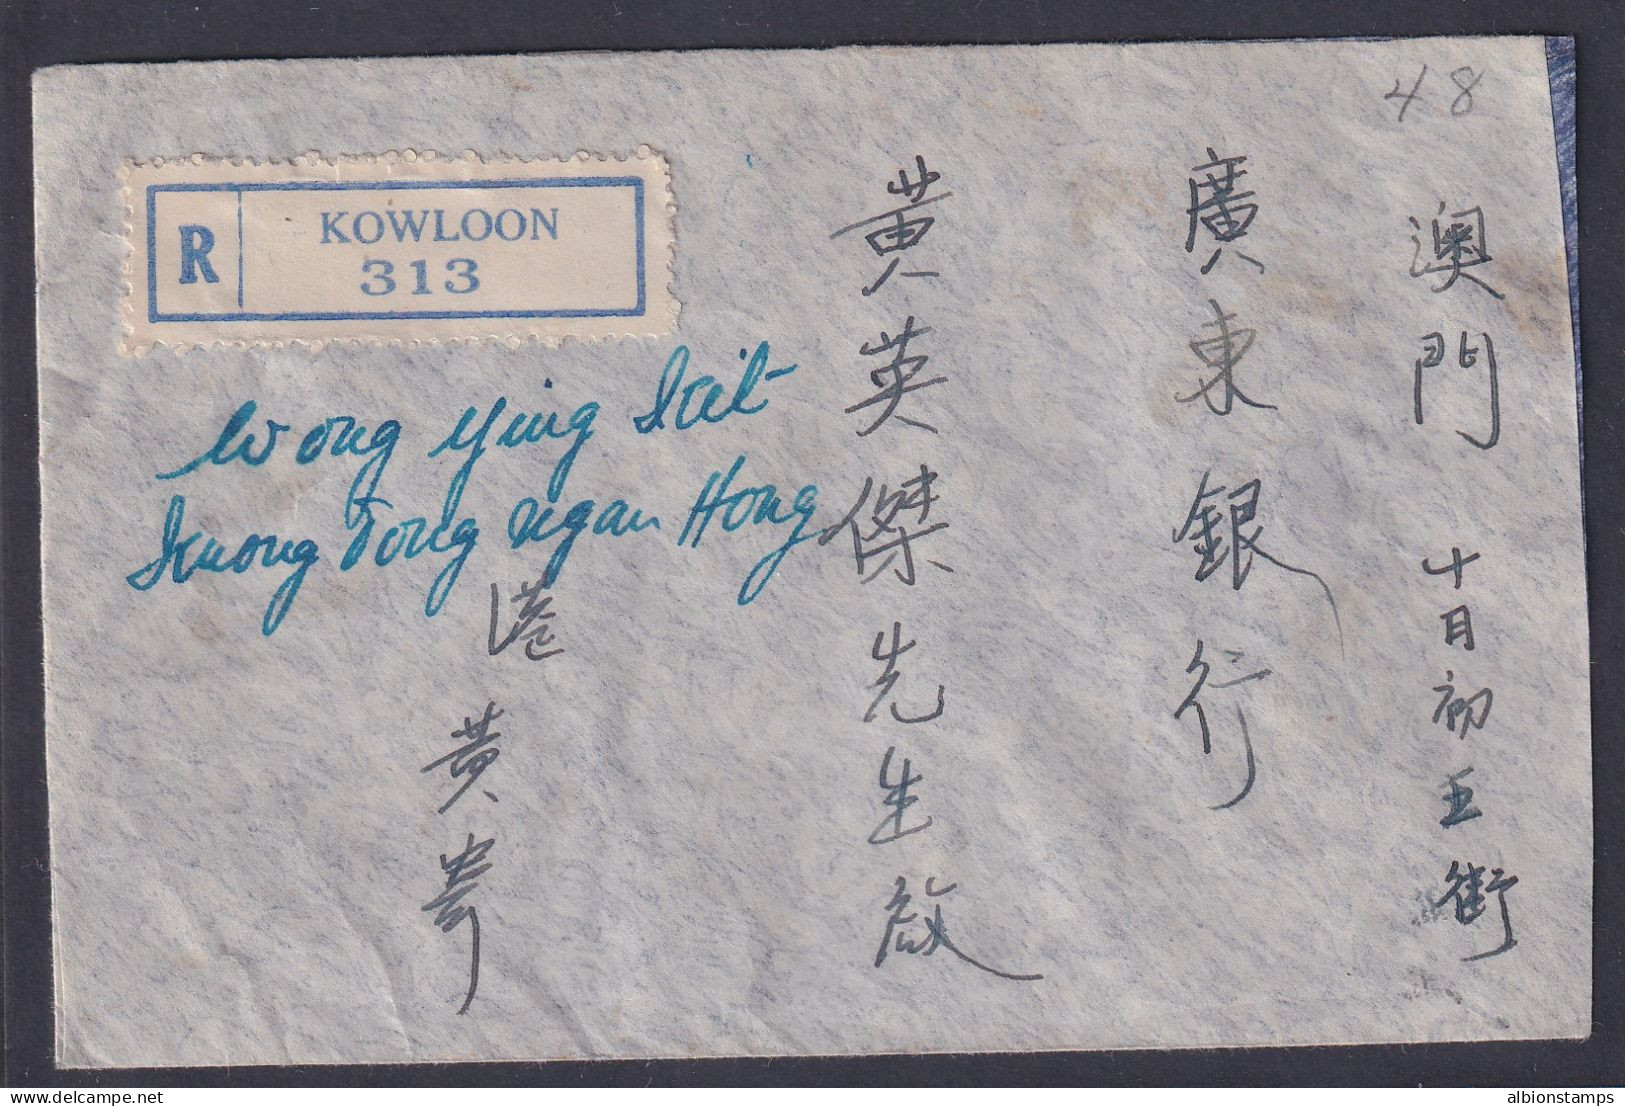 48
R
KOWLOON
313
澳門 十月初五街
廣東銀行
黃英傑先生啟
Wong Ying Kit
Kuong Tong Ngan Hong
港
黃
albionstamps